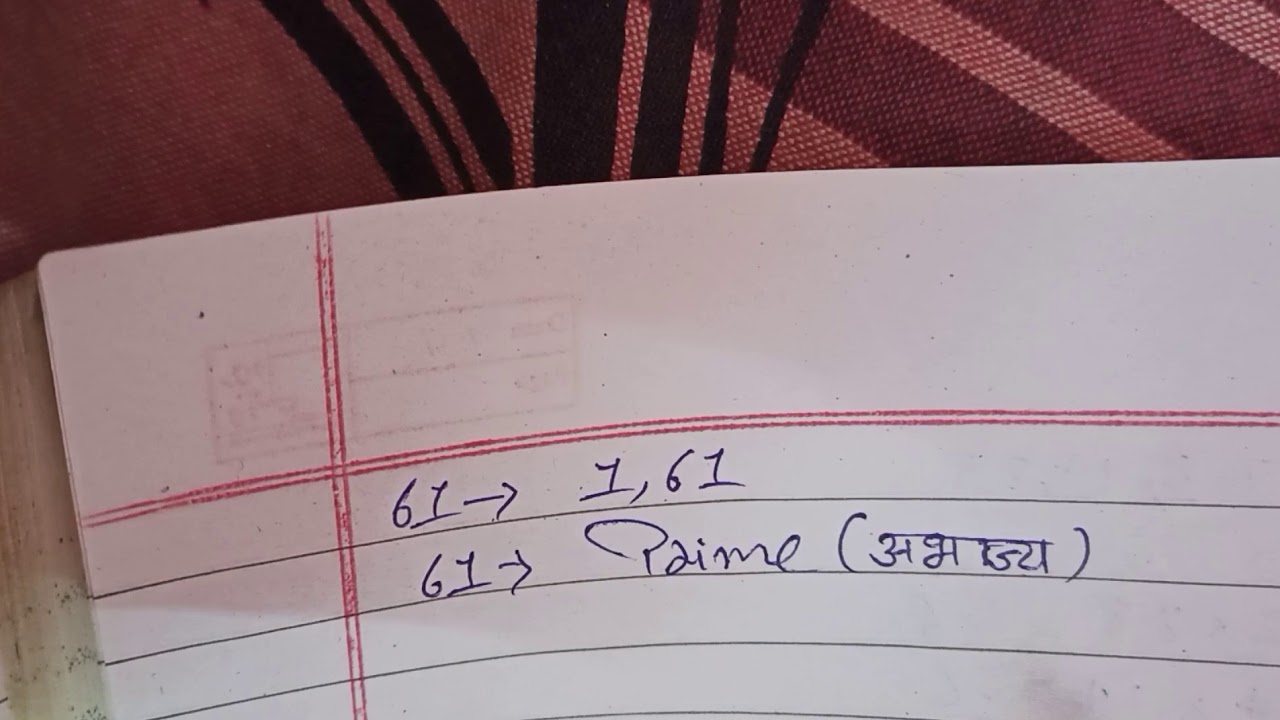 61→ 1,61
61→ Prime (अभाज्य)